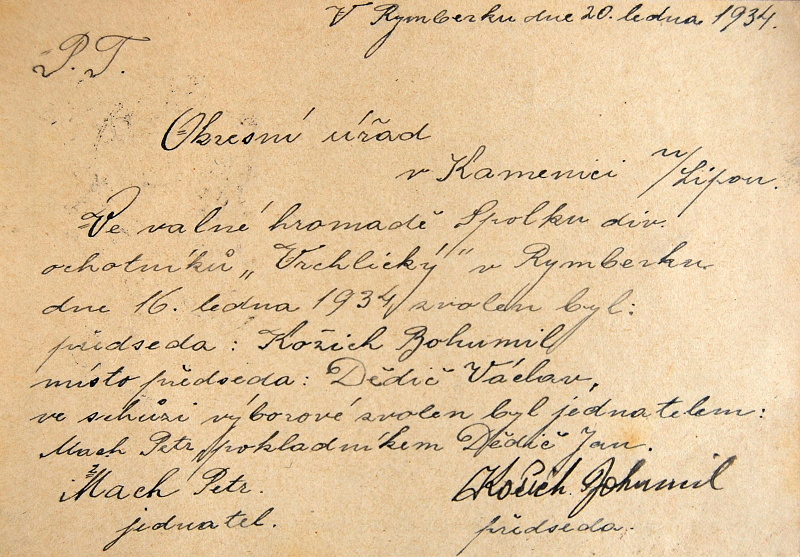 V Rymberku dne 20. ledna 1934.
P. T.
Okresní úřad
v Kamenici n/Lipou.
Ve valné hromadě Spolku div.
ochotníků „Vrchlický" v Rymberku
dne 16. ledna 1934 zvolen byl:
předseda: Kožich Bohumil
místo předseda: Dědič Václav,
ve schůzi výborové zvolen byl jednatelem:
Mach Petr, pokladníkem Dědič Jan.
Mach Petr.
Kožich Bohumil
jednatel.
předseda.